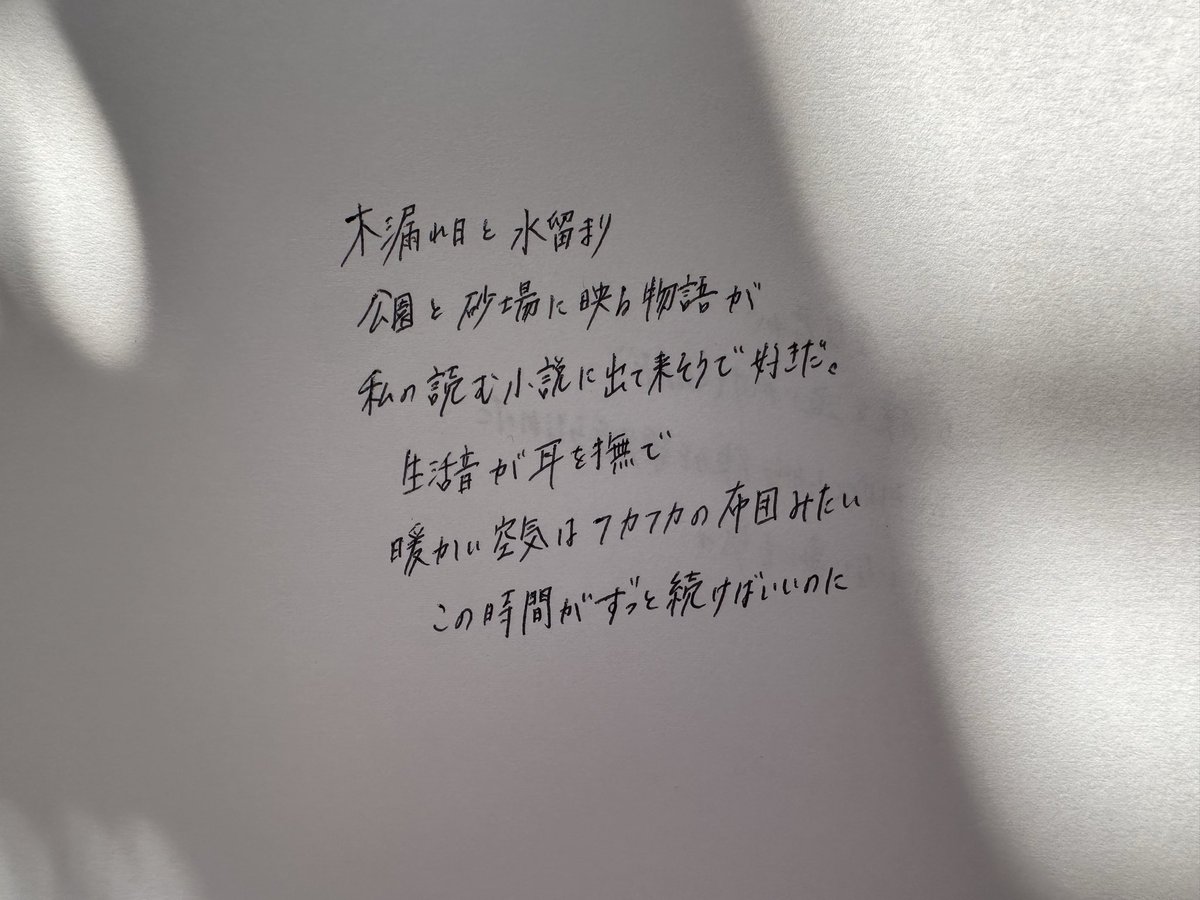 木漏れ日と水留まり
公園と砂場に映る物語が
私の読む小説に出て来そうで好きだ。
生活音が耳を撫で
暖かい空気はフカフカの布団みたい
この時間がずっと続けばいいのに